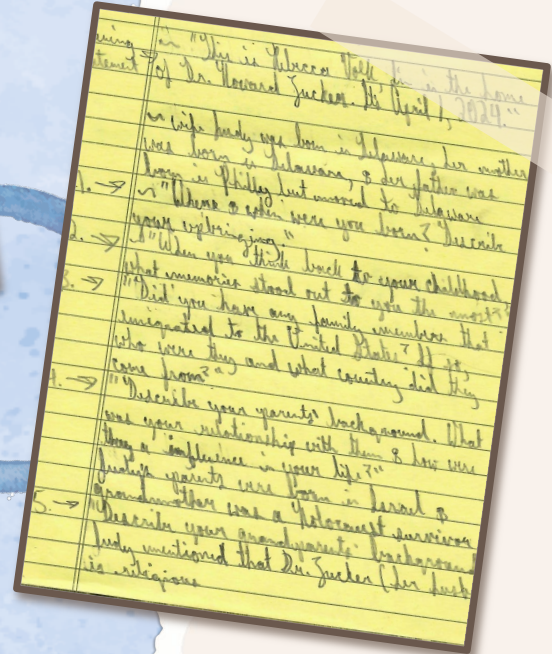 "This is Rebecca Volk. I'm in the home
tatement → of Dr. Howard Zucker. It's April 1, 2024."
wife Judy was born in Delaware, her mother
was born in Delaware, & her father was
born in Philly but moved to Delaware
1. → "Where & when were you born? Describe
your upbringing."
2. → "When you think back to your childhood,
what memories stood out to you the most?"
3. → "Did you have any family members that
immigrated to the United States? If so,
who were they and what country did they
come from?"
4. → "Describe your parents' background. What
was your relationship with them & how were
they a influence in your life?"
Judy's parents were born in Israel &
grandmother was a Holocaust survivor
5. → "Describe your grandparents' background
Judy mentioned that Dr. Zucker (her husb
is religious